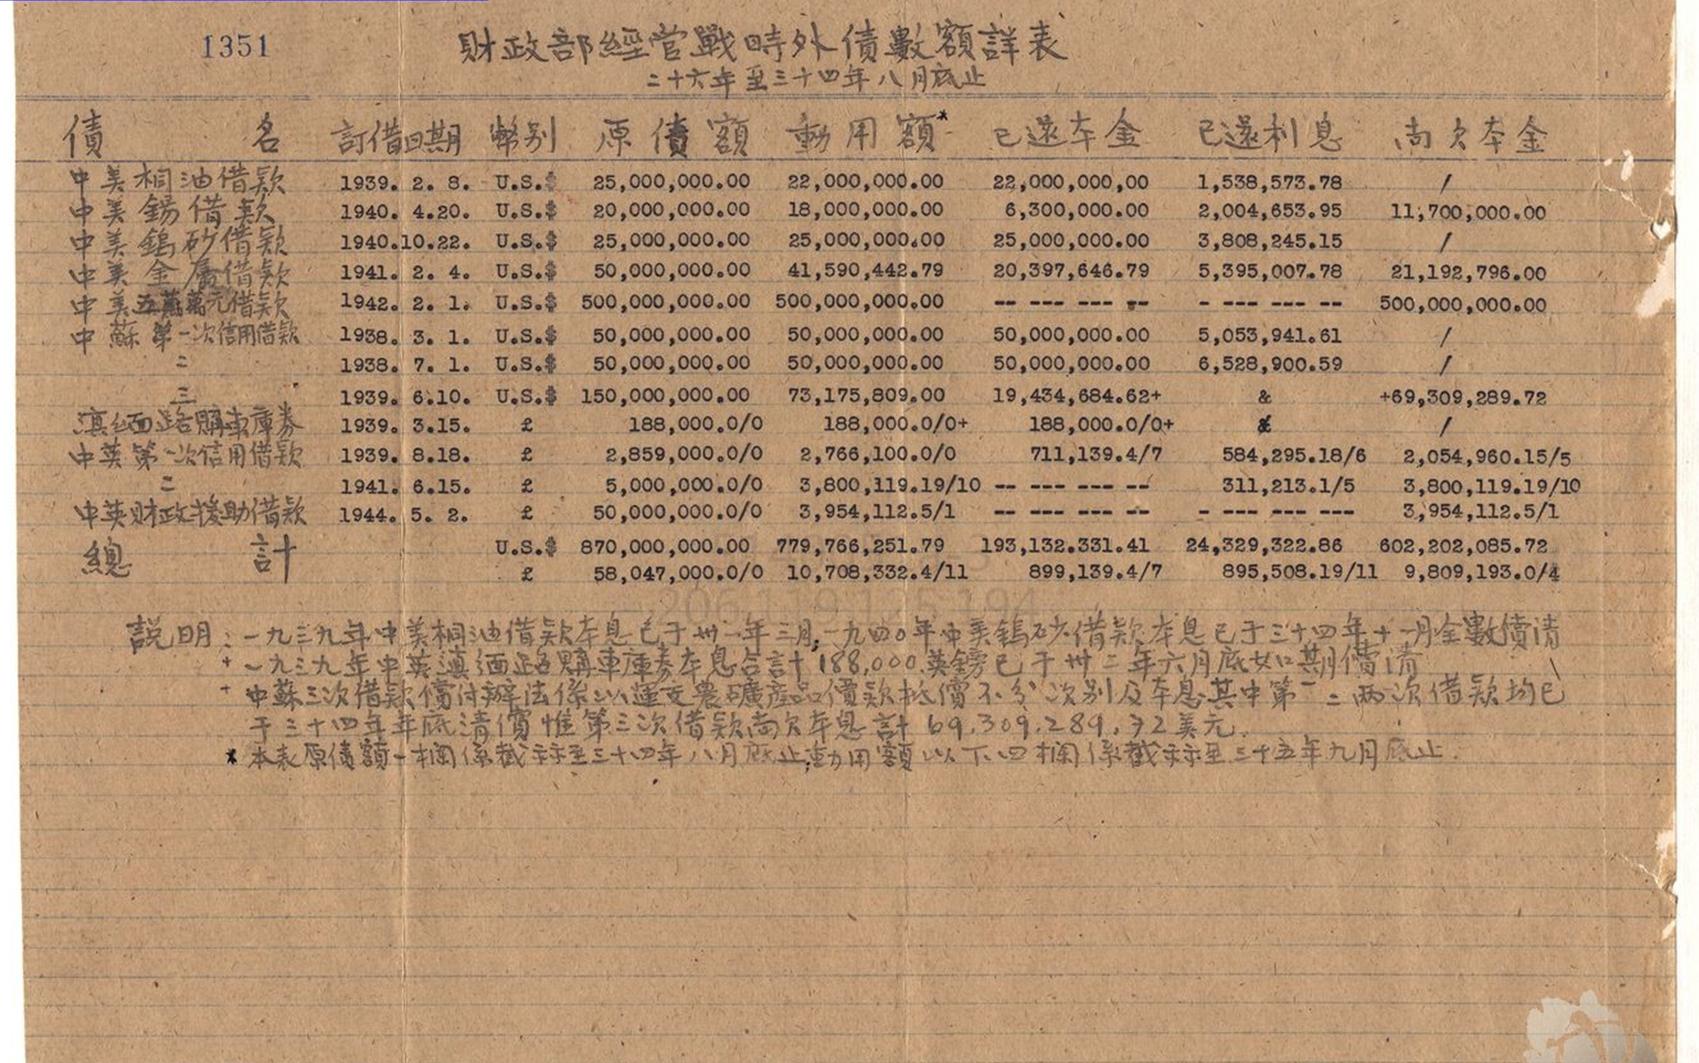 1351
財政部經管戰時外債數額詳表
二十六年至三十四年八月底止
債名 訂借日期 幣別 原債額 動用額* 已還本金 已還利息 尚欠本金
中美桐油借款 1939. 2. 8. U.S.$ 25,000,000.00 22,000,000.00 22,000,000,00 1,538,573.78 /
中美錫借款 1940. 4.20. U.S.$ 20,000,000.00 18,000,000.00 6,300,000.00 2,004,653.95 11,700,000.00
中美鎢砂借款 1940.10.22. U.S.$ 25,000,000.00 25,000,000.00 25,000,000.00 3,808,245.15 /
中美金屬借款 1941. 2. 4. U.S.$ 50,000,000.00 41,590,442.79 20,397,646.79 5,395,007.78 21,192,796.00
中美五萬萬元借款 1942. 2. 1. U.S.$ 500,000,000.00 500,000,000.00 -- --- --- -- - --- --- -- 500,000,000.00
中蘇第一次信用借款 1938. 3. 1. U.S.$ 50,000,000.00 50,000,000.00 50,000,000.00 5,053,941.61 /
二 1938. 7. 1. U.S.$ 50,000,000.00 50,000,000.00 50,000,000.00 6,528,900.59 /
三 1939. 6.10. U.S.$ 150,000,000.00 73,175,809.00 19,434,684.62+ & +69,309,289.72
滇緬路購車庫券 1939. 3.15. £ 188,000.0/0 188,000.0/0+ 188,000.0/0+ /
中英第一次信用借款 1939. 8.18. £ 2,859,000.0/0 2,766,100.0/0 711,139.4/7 584,295.18/6 2,054,960.15/5
二 1941. 6.15. £ 5,000,000.0/0 3,800,119.19/10 -- --- --- -- 311,213.1/5 3,800,119.19/10
中英財政援助借款 1944. 5. 2. £ 50,000,000.0/0 3,954,112.5/1 -- --- --- -- - --- --- --- 3,954,112.5/1
總計 U.S.$ 870,000,000.00 779,766,251.79 193,132.331.41 24,329,322.86 602,202,085.72
£ 58,047,000.0/0 10,708,332.4/11 899,139.4/7 895,508.19/11 9,809,193.0/4
206.119.125.194
說明：一九三九年中美桐油借款本息已于卅一年三月,一九四〇年中美鎢砂借款本息已于三十四年十一月全數償清
+ 一九三九年中英滇緬路購車庫券本息合計188,000英鎊已于卅二年六月底如期償清
+ 中蘇三次借款償付辦法係以運交農礦產品價款抵償不分次別及本息其中第一二兩次借款均已
于三十四年年底清償惟第三次借款尚欠本息計69,309,289,72美元.
* 本表原債額一欄係截示至三十四年八月底止,動用額以下四欄係截示至三十五年九月底止.